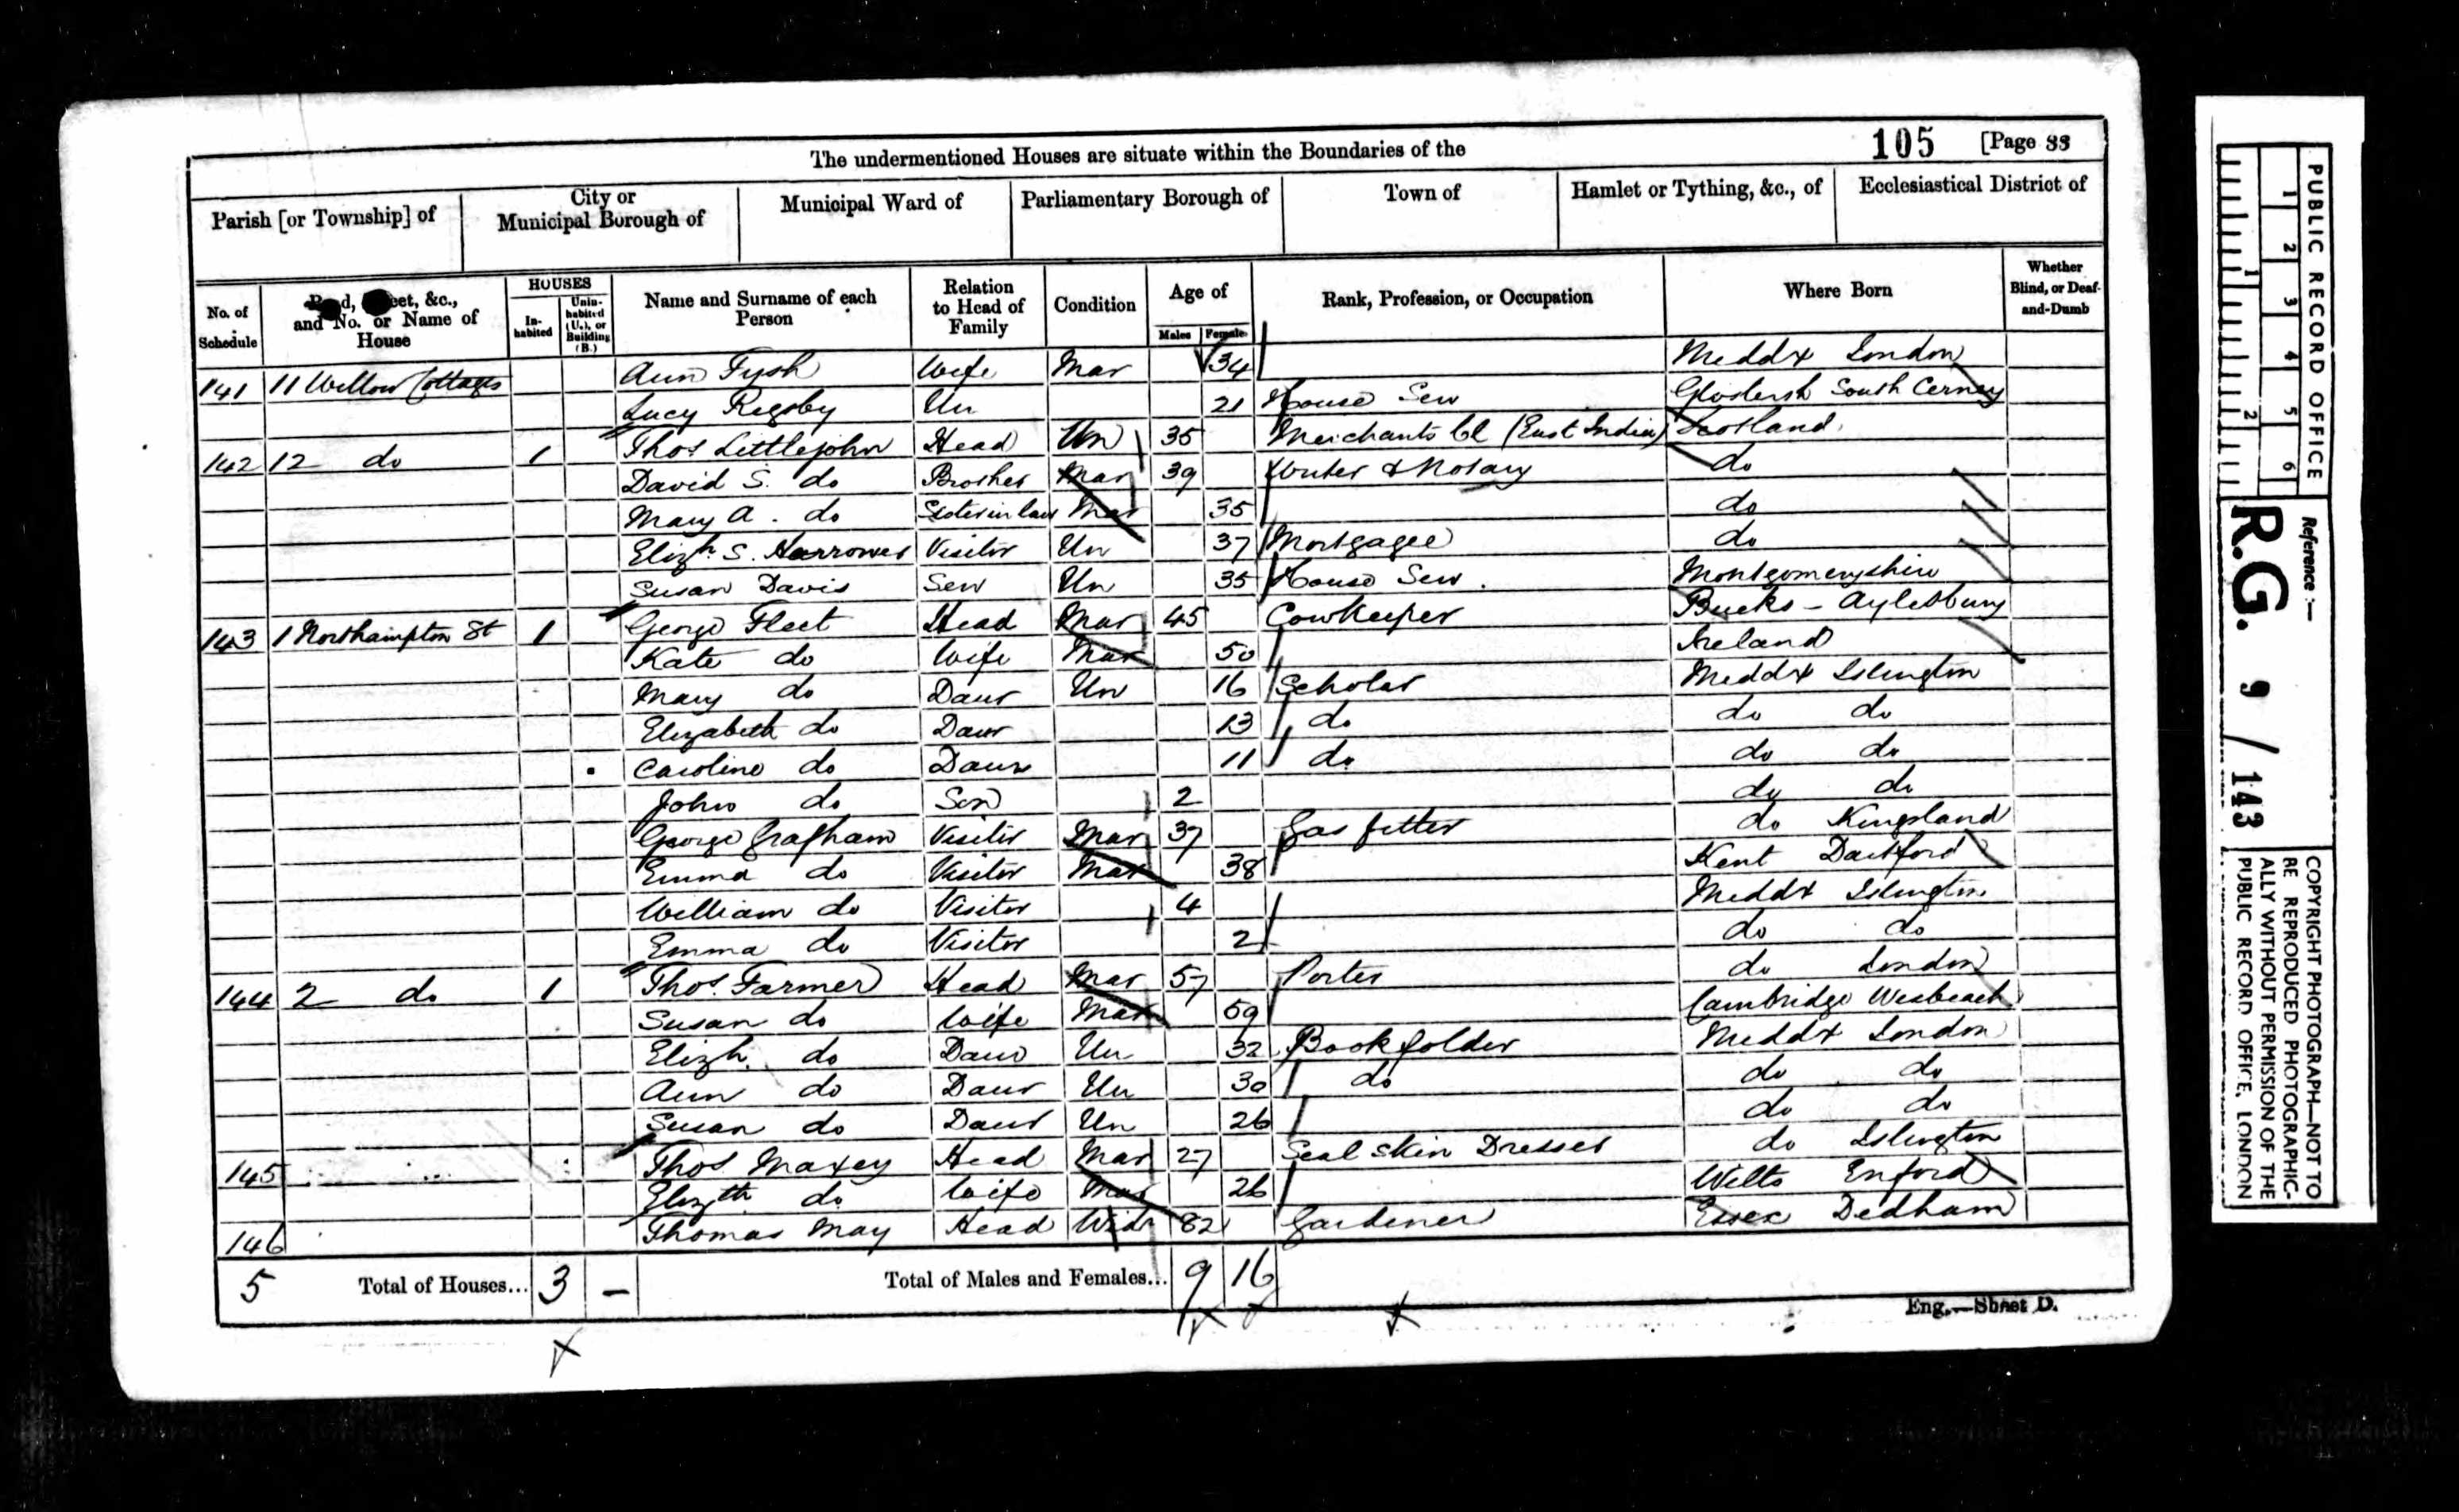 The undermentioned Houses are situate within the Boundaries of the 105 [Page 33
Parish [or Township] of City or Municipal Borough of Municipal Ward of Parliamentary Borough of Town of Hamlet or Tything, &c., of Ecclesiastical District of
No. of Schedule Road, Street, &c., and No. or Name of House HOUSES Inhabited Uninhabited (U.), or Building (B.) Name and Surname of each Person Relation to Head of Family Condition Age of Males Females Rank, Profession, or Occupation Where Born Whether Blind, or Deaf-and-Dumb
141 11 Willow Cottages Ann Fysh Wife Mar 34 Middx London
Lucy Rigsby Un 21 House Serv Glostersh South Cerney
142 12 do 1 Thos Littlejohn Head Un 35 Merchants Cl (East India) Scotland
David S. do Brother Mar 39 Writer & Notary do
Mary A. do Sister in law Mar 35 do
Elizh S. Harrower Visitor Un 37 Mortgagee do
Susan Davis Serv Un 35 House Serv. Montgomeryshire
143 1 Northampton St 1 George Fleet Head Mar 45 Cowkeeper Bucks - Aylesbury
Kate do Wife Mar 50 Ireland
Mary do Daur Un 16 Scholar Middx Islington
Elizabeth do Daur 13 do do do
Caroline do Daur 11 do do do
John do Son 2 do do
George Grafham Visitor Mar 37 Gas fitter do Kingsland
Emma do Visitor Mar 38 Kent Dartford
William do Visitor 4 Middx Islington
Emma do Visitor 2 do do
144 2 do 1 Thos. Farmer Head Mar 57 Porter do London
Susan do Wife Mar 59 Cambridge Wesbeach
Elizh. do Daur Un 32 Bookfolder Middx London
Ann do Daur Un 30 do do do
Susan do Daur Un 26 do do
145 Thos Maxey Head Mar 27 Seal Skin Dresser do Islington
Elizth do Wife Mar 26 Wilts Enford
146 Thomas May Head Widr 82 Gardener Essex Dedham
5 Total of Houses... 3 – Total of Males and Females... 9 16
Eng.—Sheet D.
PUBLIC RECORD OFFICE
1 2 3 4 5 6
1 2
Reference :—
R.G. 9 / 143
COPYRIGHT PHOTOGRAPH—NOT TO
BE REPRODUCED PHOTOGRAPHIC-
ALLY WITHOUT PERMISSION OF THE
PUBLIC RECORD OFFICE, LONDON